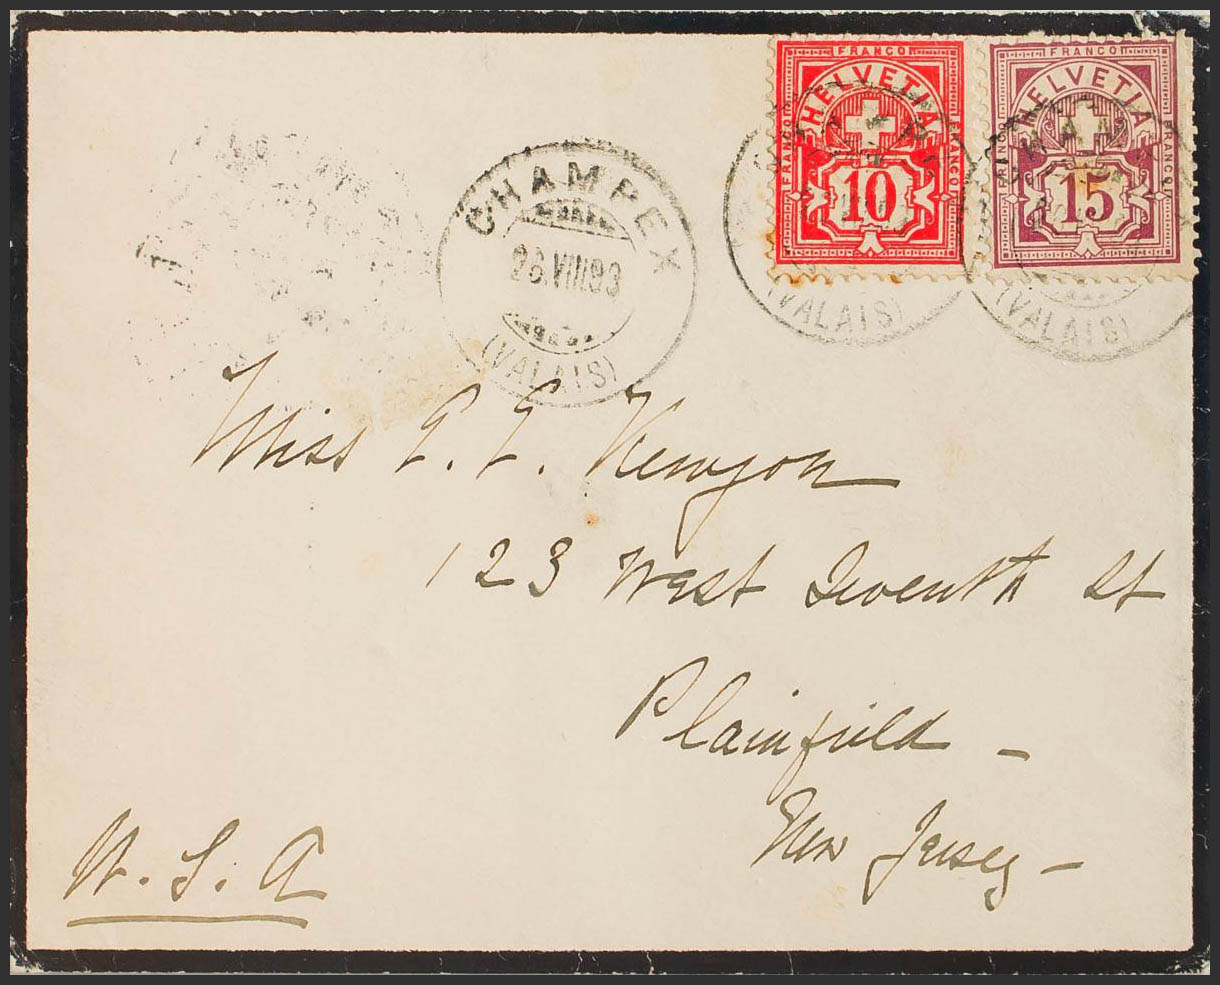 FRANCO
HELVETIA
FRANCO
FRANCO
10
FRANCO
HELVETIA
FRANCO
FRANCO
15
CHAMPEX
26.VIII 93
(VALAIS)
(VALAIS)
(VALAIS)
Miss E. E. Kenyon
123 West Seventh St
Plainfield -
New Jersey -
U. S. A